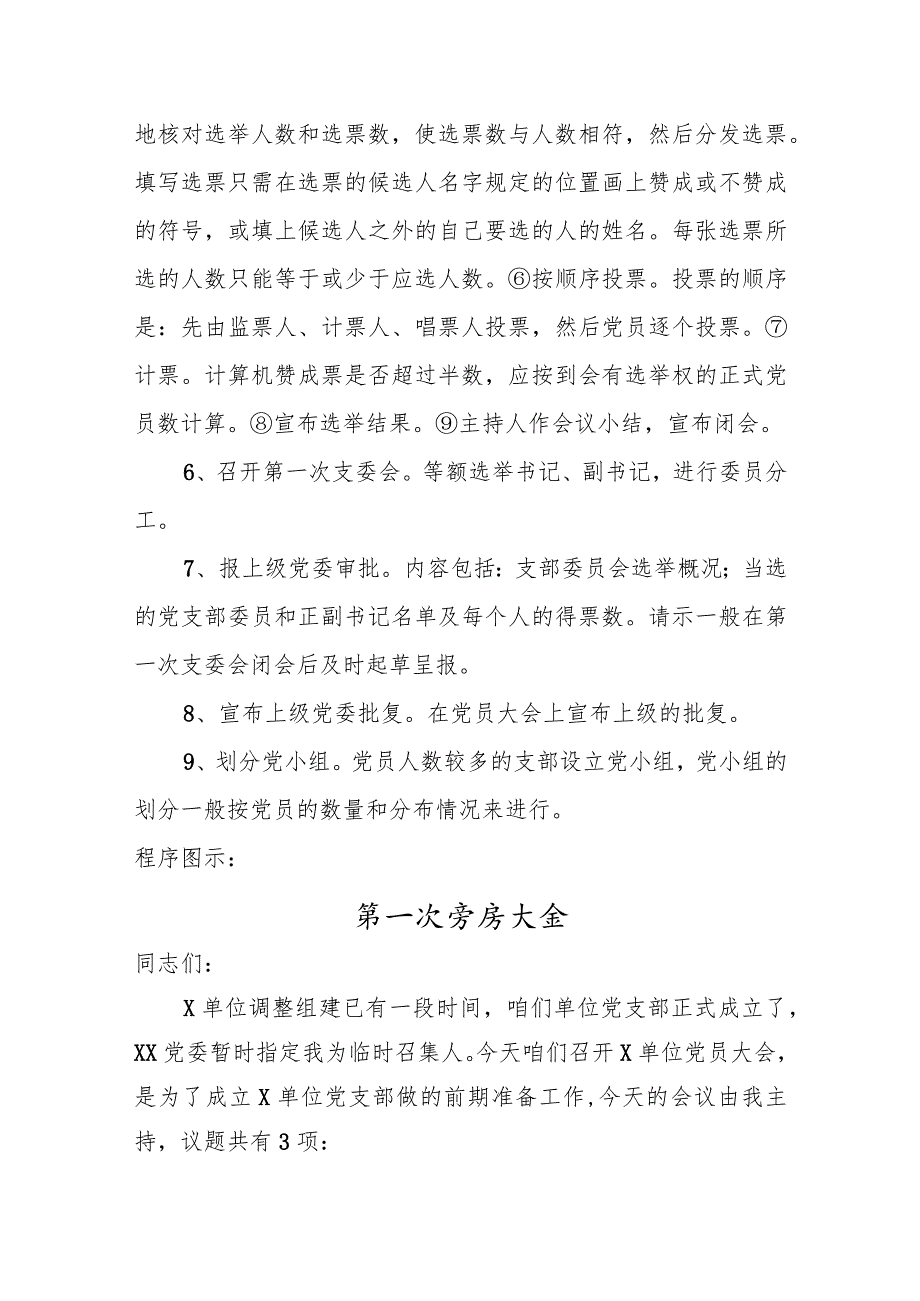 地核对选举人数和选票数，使选票数与人数相符，然后分发选票。
填写选票只需在选票的候选人名字规定的位置画上赞成或不赞成
的符号，或填上候选人之外的自己要选的人的姓名。每张选票所
选的人数只能等于或少于应选人数。⑥按顺序投票。投票的顺序
是：先由监票人、计票人、唱票人投票，然后党员逐个投票。⑦
计票。计算机赞成票是否超过半数，应按到会有选举权的正式党
员数计算。⑧宣布选举结果。⑨主持人作会议小结，宣布闭会。
6、召开第一次支委会。等额选举书记、副书记，进行委员分
工。
7、报上级党委审批。内容包括：支部委员会选举概况；当选
的党支部委员和正副书记名单及每个人的得票数。请示一般在第
一次支委会闭会后及时起草呈报。
8、宣布上级党委批复。在党员大会上宣布上级的批复。
9、划分党小组。党员人数较多的支部设立党小组，党小组的
划分一般按党员的数量和分布情况来进行。
程序图示：
第一次旁房大金
同志们：
X 单位调整组建已有一段时间，咱们单位党支部正式成立了，
XX 党委暂时指定我为临时召集人。今天咱们召开 X 单位党员大会，
是为了成立 X 单位党支部做的前期准备工作,今天的会议由我主
持，议题共有 3 项：